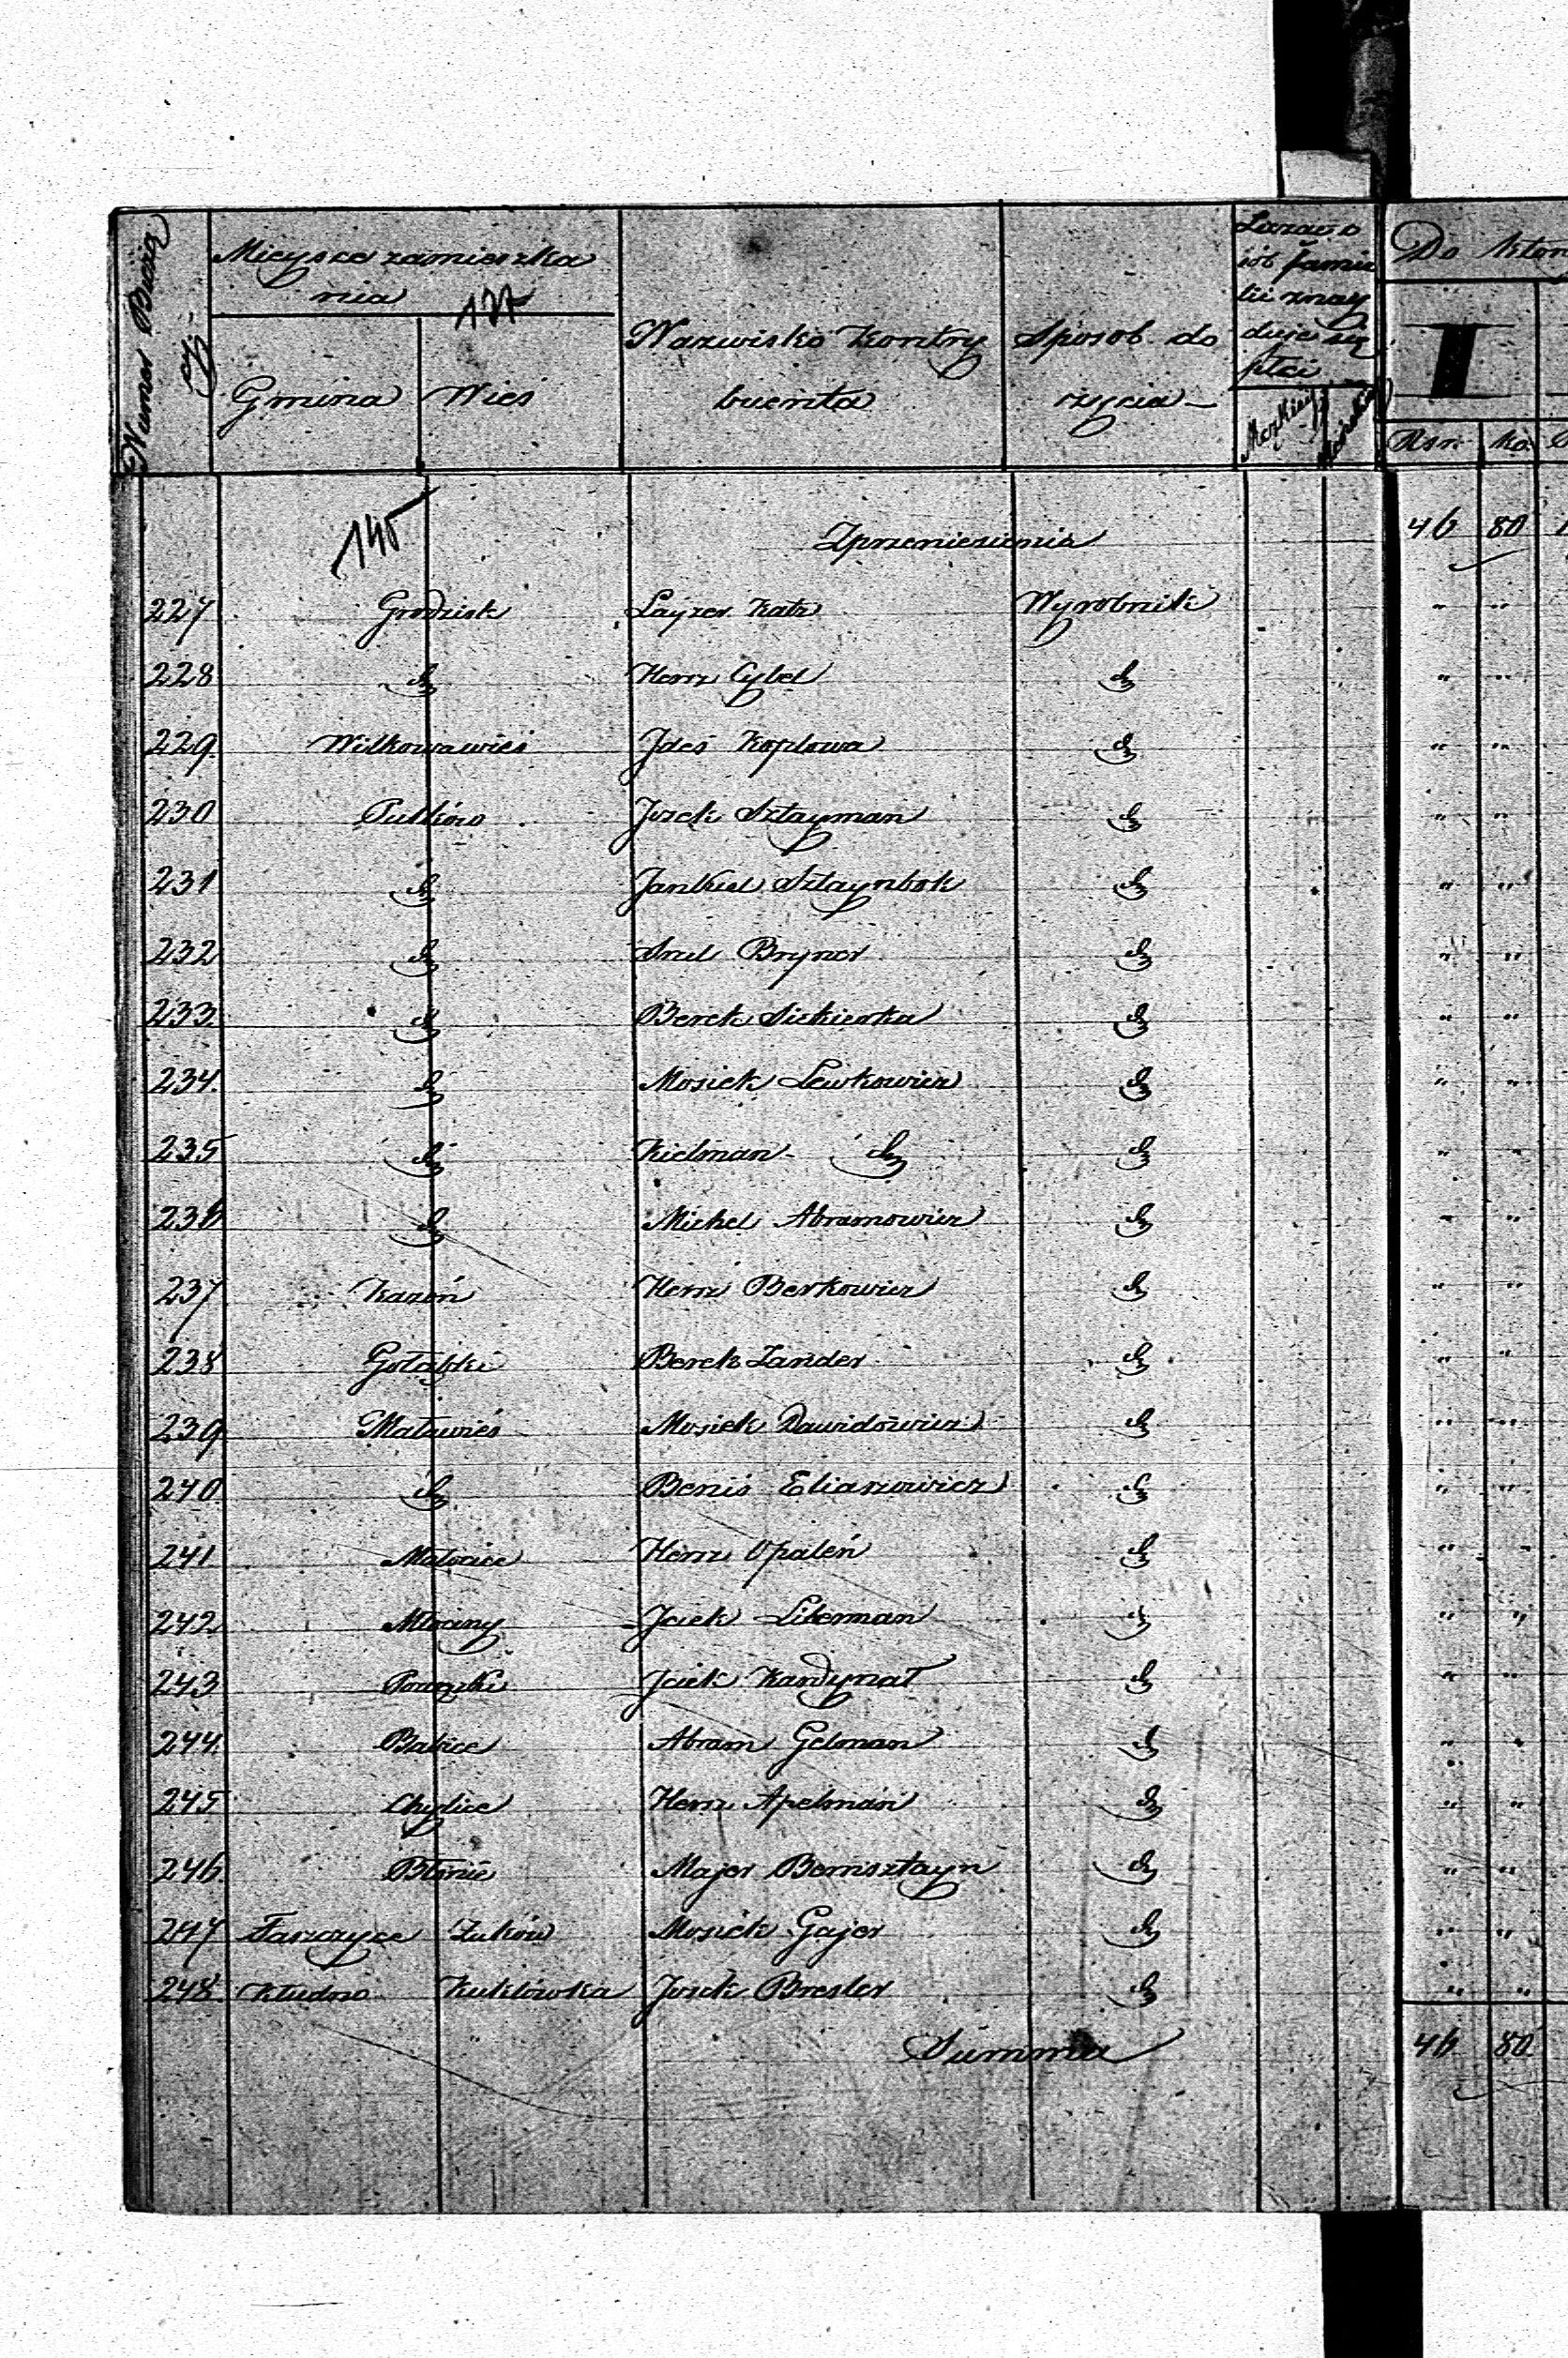 Numer Bieżą
cy
Mieysce zamieszka
nia
127
Gmina
Wieś
Nazwisko Kontry
buenta
Sposob do
życia
Liczba o
sób familii
znay
duje się
płci
Męzkiey
Żeńskiey
Do któr
I
Rsr. Ko.
145
Zprzeniesienia 46 80
227 Grodzisk Layzer Katz Wyrobnik " "
228 do Hersz Cybel do " "
229 Wilkowawieś Jdes Koplowa do " "
230 Putków Josek Sztayman do " "
231 do Jankiel Sztaynbok do " "
232 do Srul Bryner do " "
233. do Berek Siekierka do " "
234. do Mosiek Lewkowicz do " "
235 do Kielman do do " "
236 do Michel Abramowicz do " "
237 Kazóń Hersz Berkowicz do " "
238 Gołąbki Berek Zander do " "
239 Matawieś Mosiek Dawidowicz do " "
240 do Benis Eliazowicz do " "
241 Hersz Opaleń do " "
242 Młociny Jcek Liberman do " "
243 Powązki Jcek Kardynał do " "
244. Babice Abram Gelman do " "
245 Chylice Hersz Apelman do " "
246 Błonie Majer Bernsztayn do " "
247 Żuków Mosiek Gajer do " "
248. Kludno Kuklówka Josek Bresler do " "
Summa 46 80